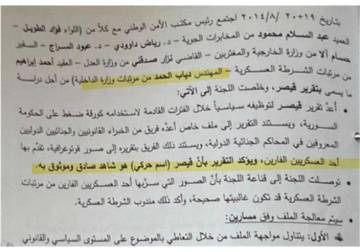 بتاريخ ١٩-٢٠/٨/٢٠١٤ اجتمع رئيس مكتب الأمن الوطني مع كلاً من (اللواء فؤاد الطويل -
العميد عبد السلام محمود من المخابرات الجوية - د. رياض داوودي - د. عبود السراج - السفير
حسام آلا من وزارة الخارجية والمغتربين - القاضي نزار صدقني من وزارة العدل - العقيد أحمد إبراهيم
من مرتبات الشرطة العسكرية - المهندس دياب الحمد من مرتبات وزارة الداخلية) من أجل دراسة
ما يسمى بتقرير قيصر، وخلصت اللجنة إلى الآتي:
• أعدّ تقرير قيصر لتوظيفه سياسياً خلال الفترات القادمة لاستخدامه كورقة ضغط على الحكومة
السورية، ويستند التقرير إلى ملف خاص أعدّه فريق من الخبراء القانونيين والجنائيين الدوليين
المعروفين في المحاكم الجنائية الدولية، ويستند ذلك الفريق بتقريره إلى صور فوتوغرافية، تقدّم بها
أحد العسكريين الفارين، ويؤكد التقرير بأنّ قيصر (اسم حركي) هو شاهد صادق وموثوق به.
• توصلت اللجنة إلى قناعة بأنّ الصور التي سرّبها أحد العسكريين الفارين من مرتبات
الشرطة العسكرية قد تكون غالبيتها صحيحة، وأكد ذلك مندوب الشرطة العسكرية.
• سيتم معالجة الملف وفق مسارين:
الأول: يتناول مواجهة الملف من خلال التعاطي بالموضوع على المستوى السياسي والقانوني